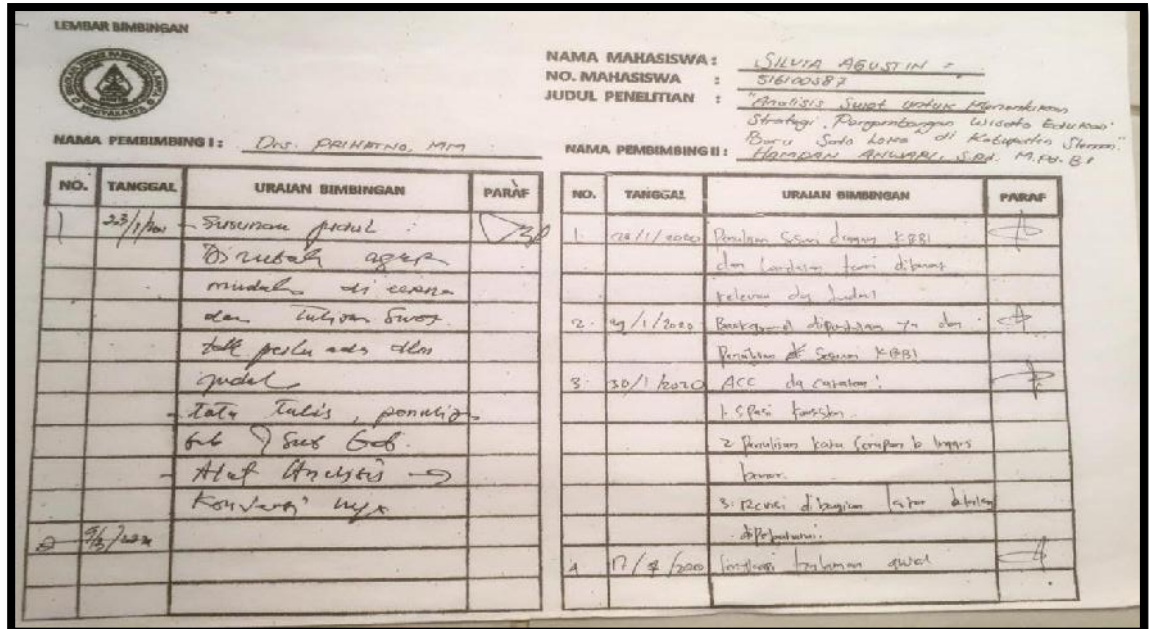 LEMBAR BIMBINGAN
NAMA MAHASISWA : SILVIA AGUSTIN
NO. MAHASISWA : 516100587
JUDUL PENELITIAN : "Analisis Swot untuk Menentukan
Strategi Pengembangan Wisata Edukasi
Baru Sado Loka di Kabupaten Sleman."
NAMA PEMBIMBING I : Drs. PRIHATNO, MM
NAMA PEMBIMBING II : HAMDAN ANWARI, S.Pd. M.Pd. B.I
NO. TANGGAL URAIAN BIMBINGAN PARAF
1 23/1/ - Susunan judul
Dirubah agar
mudah di cerna
dan tulisan Swot
tdk perlu ada dlm
judul
- Tata Tulis,
bab Sub bab.
- Alat Analysis
2
NO. TANGGAL URAIAN BIMBINGAN PARAF
1. /1/2020 Penulisan sesuai dengan KBBI
dan landasan teori dibuat
relevan dg judul
2. 29/1/2020 Background dan
Penulisan sesuai KBBI
3. 30/1/2020 ACC dg catatan :
1. Spasi
2. Penulisan kata serapan b. Inggris
benar.
3. Revisi dibagian latar
diperbaiki.
4 17/ /2020 halaman awal